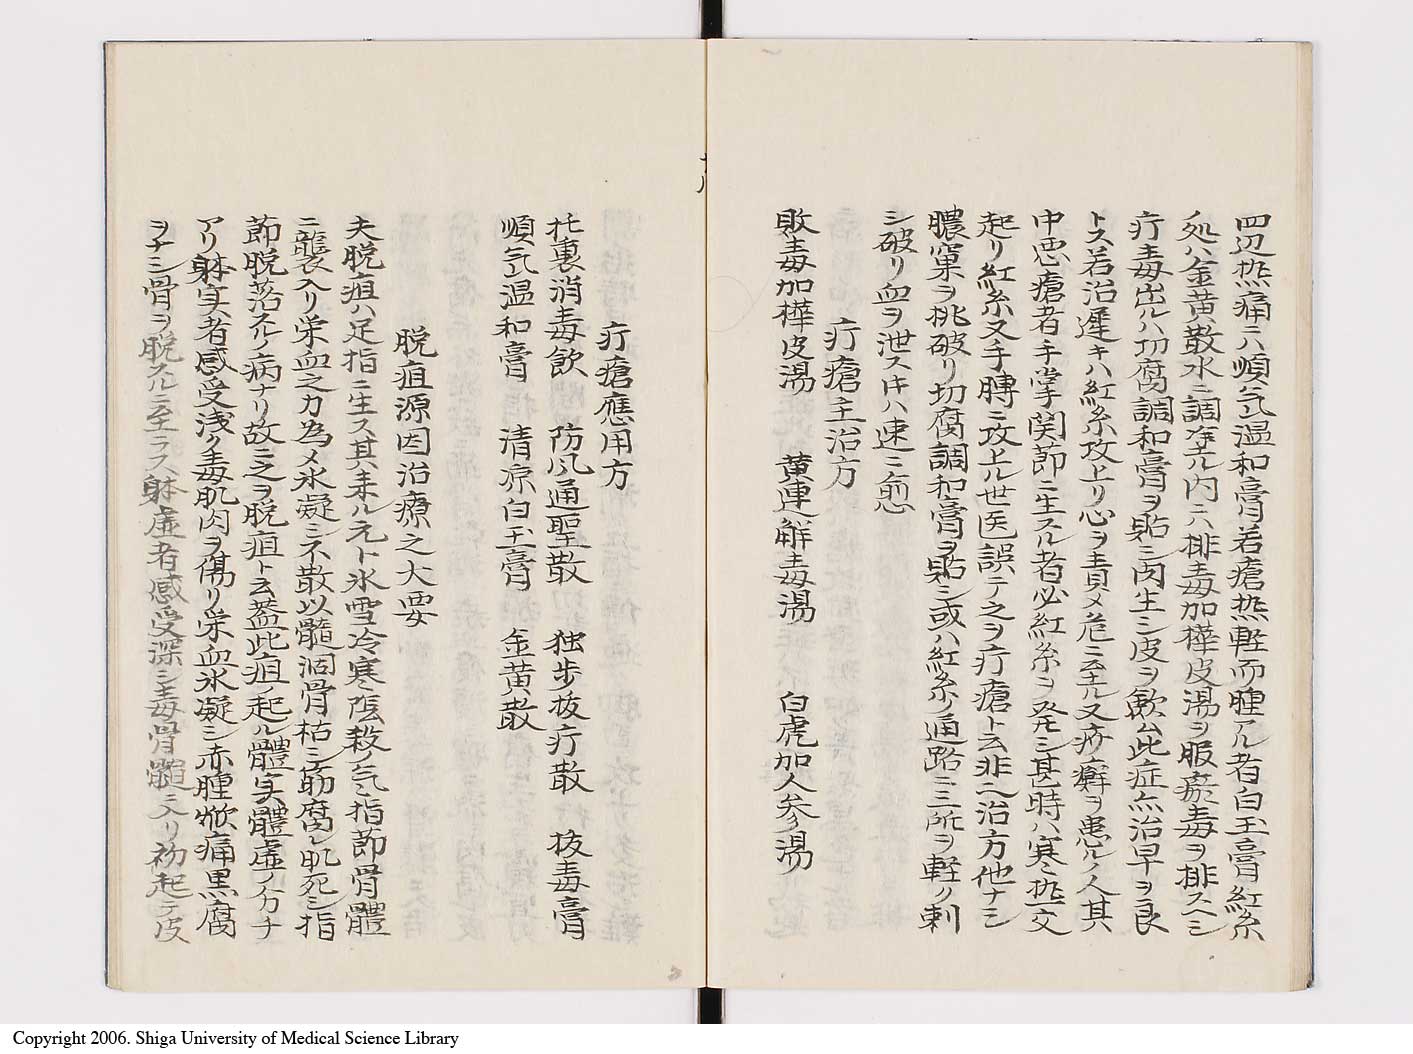 四辺热痛ニハ順気温和膏若瘡热軽而腫アル者白玉膏紅糸
処ハ金黄散水ニ調塗ル内ニハ排毒加樺皮湯ヲ服瘀毒ヲ排スヘシ
疔毒出ルハ切腐調和膏ヲ貼シ肉生シ皮ヲ歛ム此症点治早ヲ良
トス若治遅キハ紅糸攻上リ心ヲ責メ危ニ至ル又疥癬ヲ患ルノ人其
中悪瘡者手掌関節ニ生スル者必紅糸ヲ発シ甚時ハ寒热交
起リ紅糸又手膊ニ攻上ル世医誤テ之ヲ疔瘡ト云非也治方他ナシ
膿窠ヲ挑破リ切腐調和膏ヲ貼シ或ハ紅糸ノ通路ニ三所ヲ軽ク刺
シ破リ血ヲ泄スキハ速ニ愈
疔瘡主治方
敗毒加樺皮湯 黄連解毒湯 白虎加人参湯
疔瘡應用方
托裏消毒飲 防風通聖散 独歩抜疔散 抜毒膏
順気温和膏 清凉白玉膏 金黄散
脱疽源因治療之大要
夫脱疽ハ足指ニ生ス其来ル元ト氷雪冷寒ノ陰殺ノ気指節骨體
ニ襲入リ栄血之カ為メ氷凝ミ不散以髓涸骨枯シ筋腐レ肌死シ指
節脱落スルノ病ナリ故ニ之ヲ脱疽ト云蓋此疽ノ起ル體実體虚ノ分チ
アリ躰実者感受浅ク毒肌肉ヲ傷リ栄血氷凝シ赤腫焮痛黒腐
ヲナシ骨ヲ脱スルニ至ラス躰虚者感受深シ毒骨髓ニ入リ初起テ皮
Copyright 2006. Shiga University of Medical Science Library